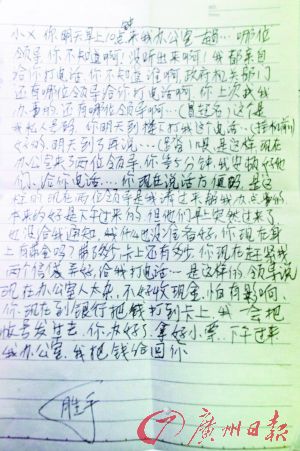 小X 你明天早上10点来我办公室一趟…哪位
领导,你不知道啊!没听出来啊!我都亲自
给你打电话,你不知道谁啊,政府机关部门
还有哪位领导给你打电话啊,你上次我我
办事的还有哪位领导啊…(冒起名)这个是
我私人号码,你明天到楼下打我这个电话…(挂机前)
好的,明天到了再说…(冒名)喂是这样,现在
办公室来了两位领导,你等5分钟,我安排好他
们,给你电话…你现在说话方便吗,是这
样的,现在两位领导是我请过来帮我办点事的
本来约好是下午过来的,但他们早上突然过来了
也没给我通知,我什么也没准备好,你现在身
上有现金吗?带了多少,卡上还有多少,你现在赶紧找
两个信封弄好,给我打电话…是这样的,领导说
现在办公室人太杂,不好收现金,怕有影响,
你现在到银行把钱打到卡上,我一会把
帐号发过去,你办好了,拿好小票…下午过来
我办公室,我把钱给回你
胜子
广州日报